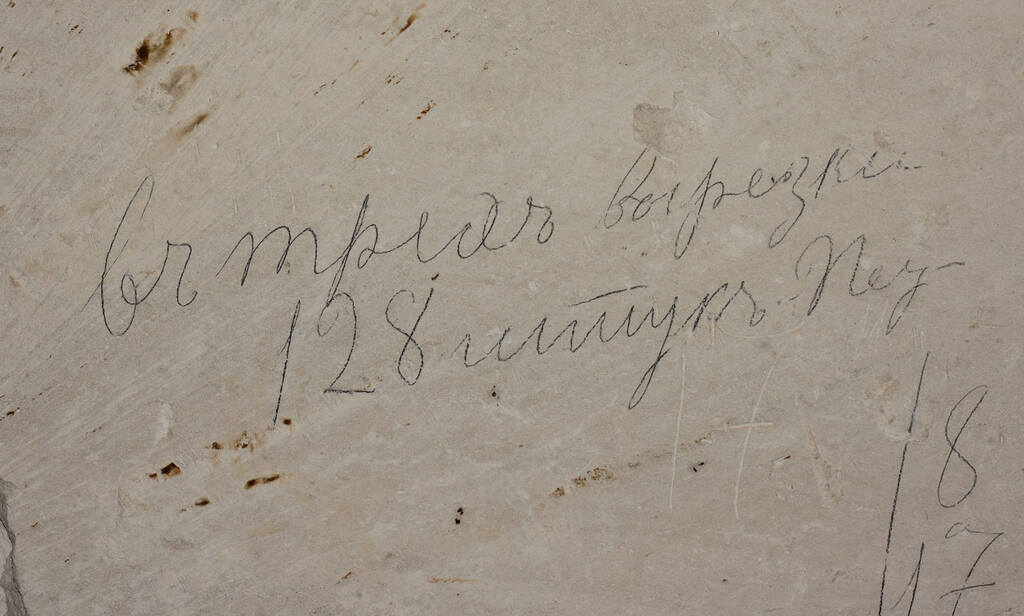 въ трехъ вырезки
128 штукъ
18
17